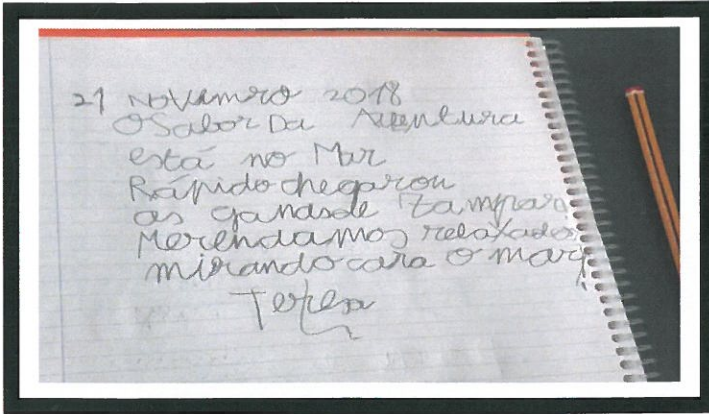 21 Novemro 2018
O Sabor Da Aventura
está no Mar
Rápido chegarou
as ganasde Zampar,
Merendamos relaxados
mirando cara o mar,
Teresa